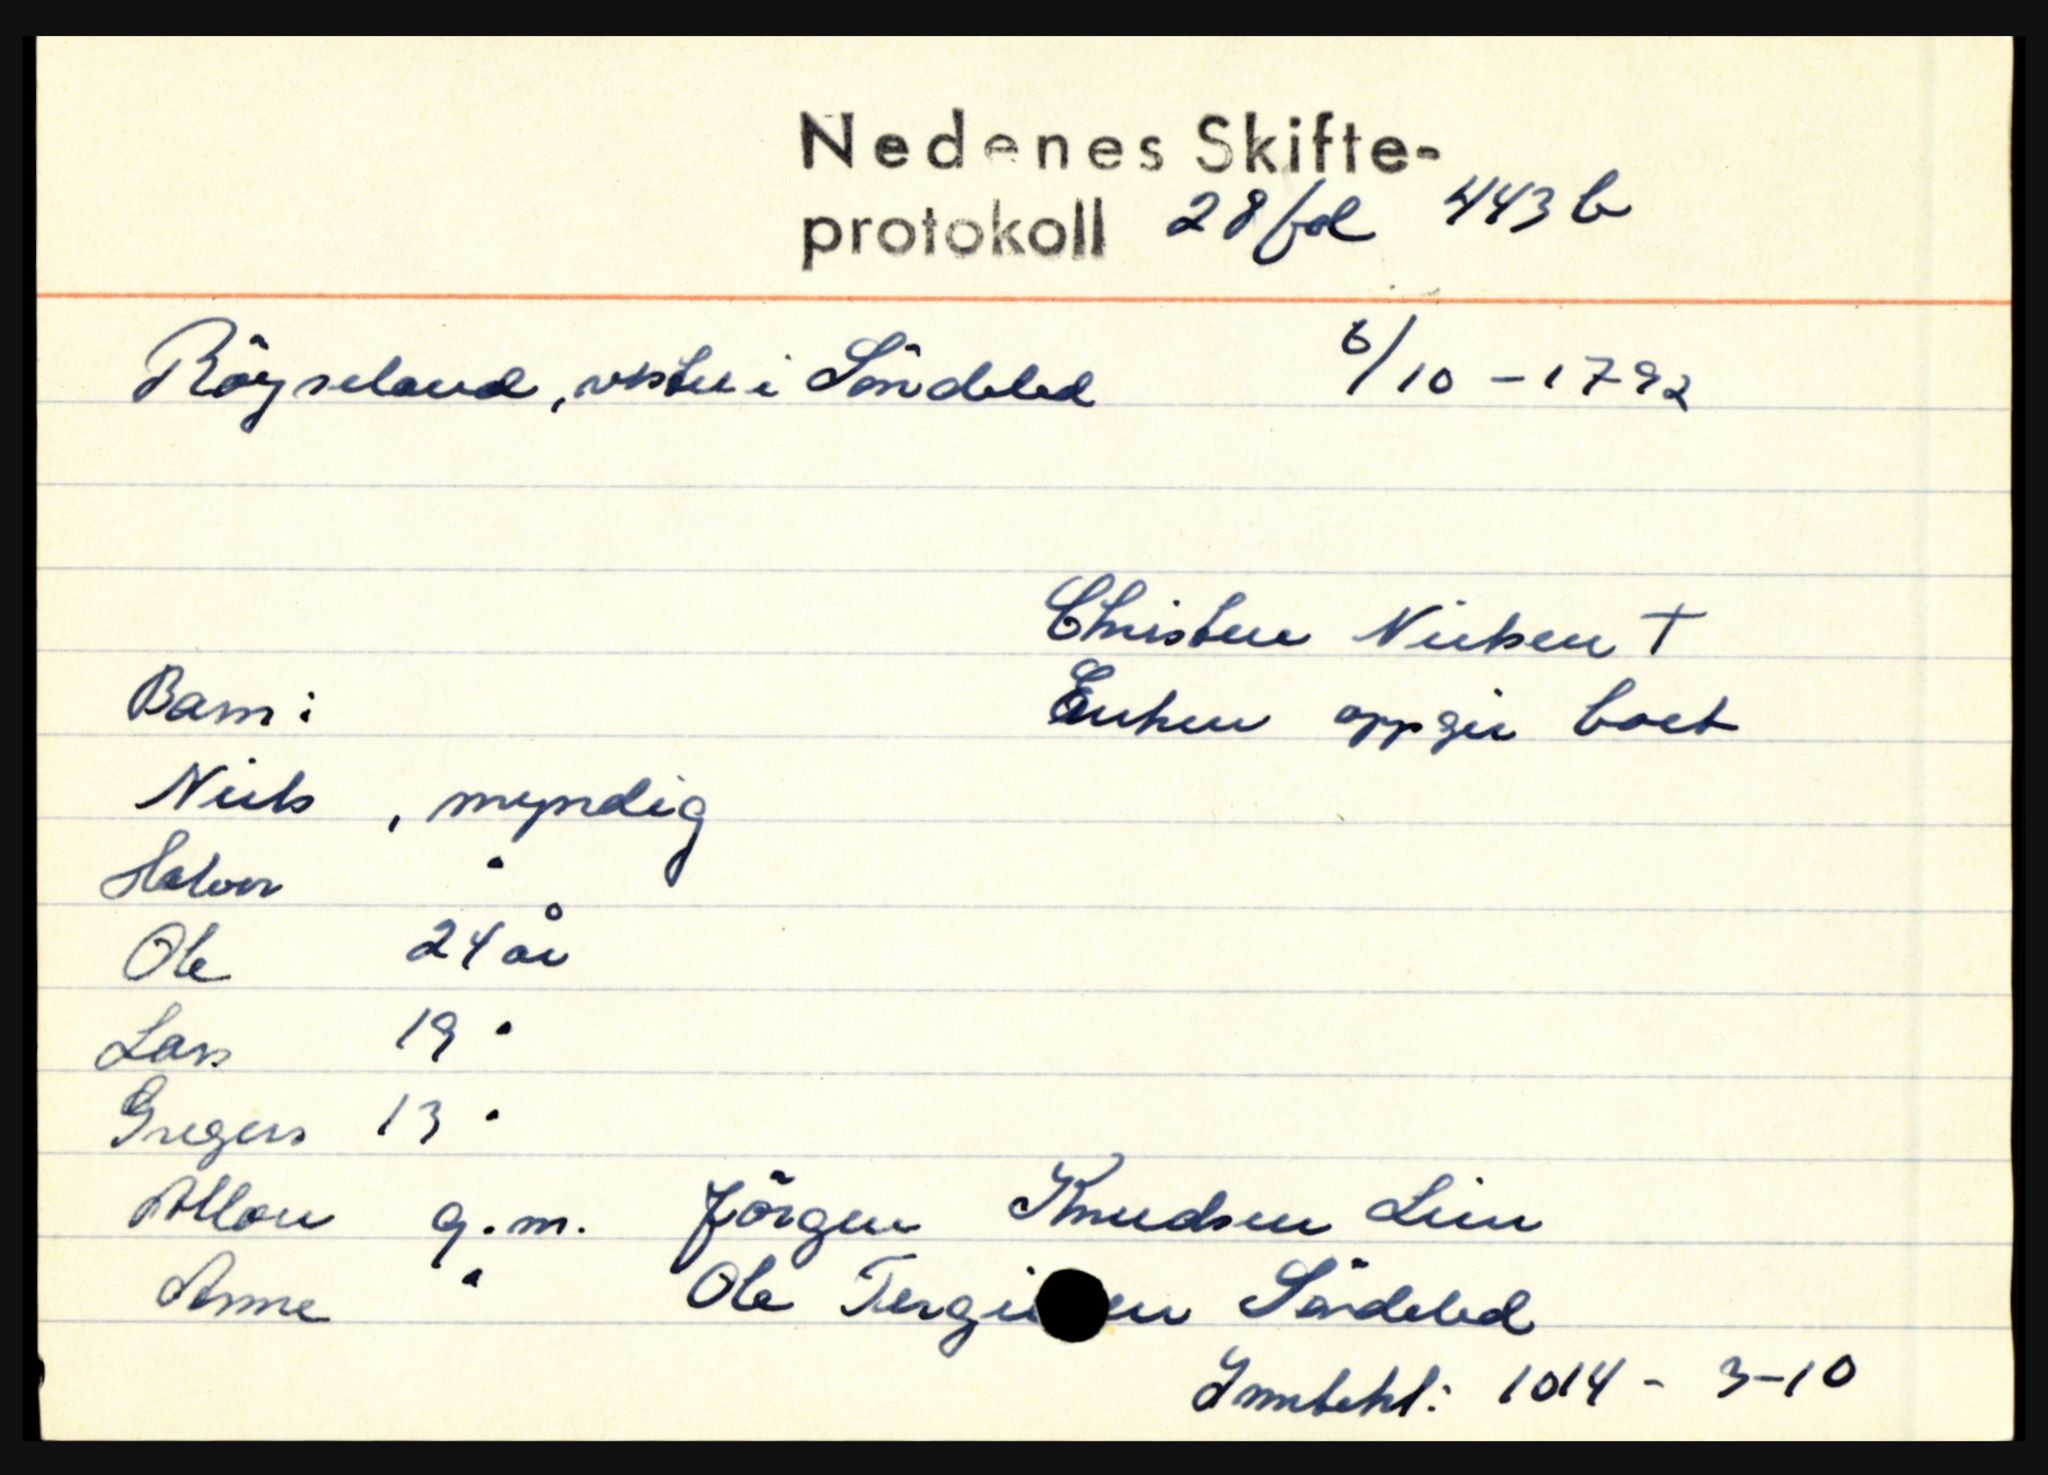 Nedenes Skifte-
protokoll 28 fol 443 b
Röyseland, vestre i Söndeled 6/10 - 1792
Christen Nielsen †
Barn: Enken oppgir boet
Niels, myndig
Halvor "
Ole 24 år
Lars 19 "
Gregers 13 "
g.m. Jörgen Knudsen Lien
Anne " Ole Tergi en Söndeled
Inntekt: 1014 - 3-10